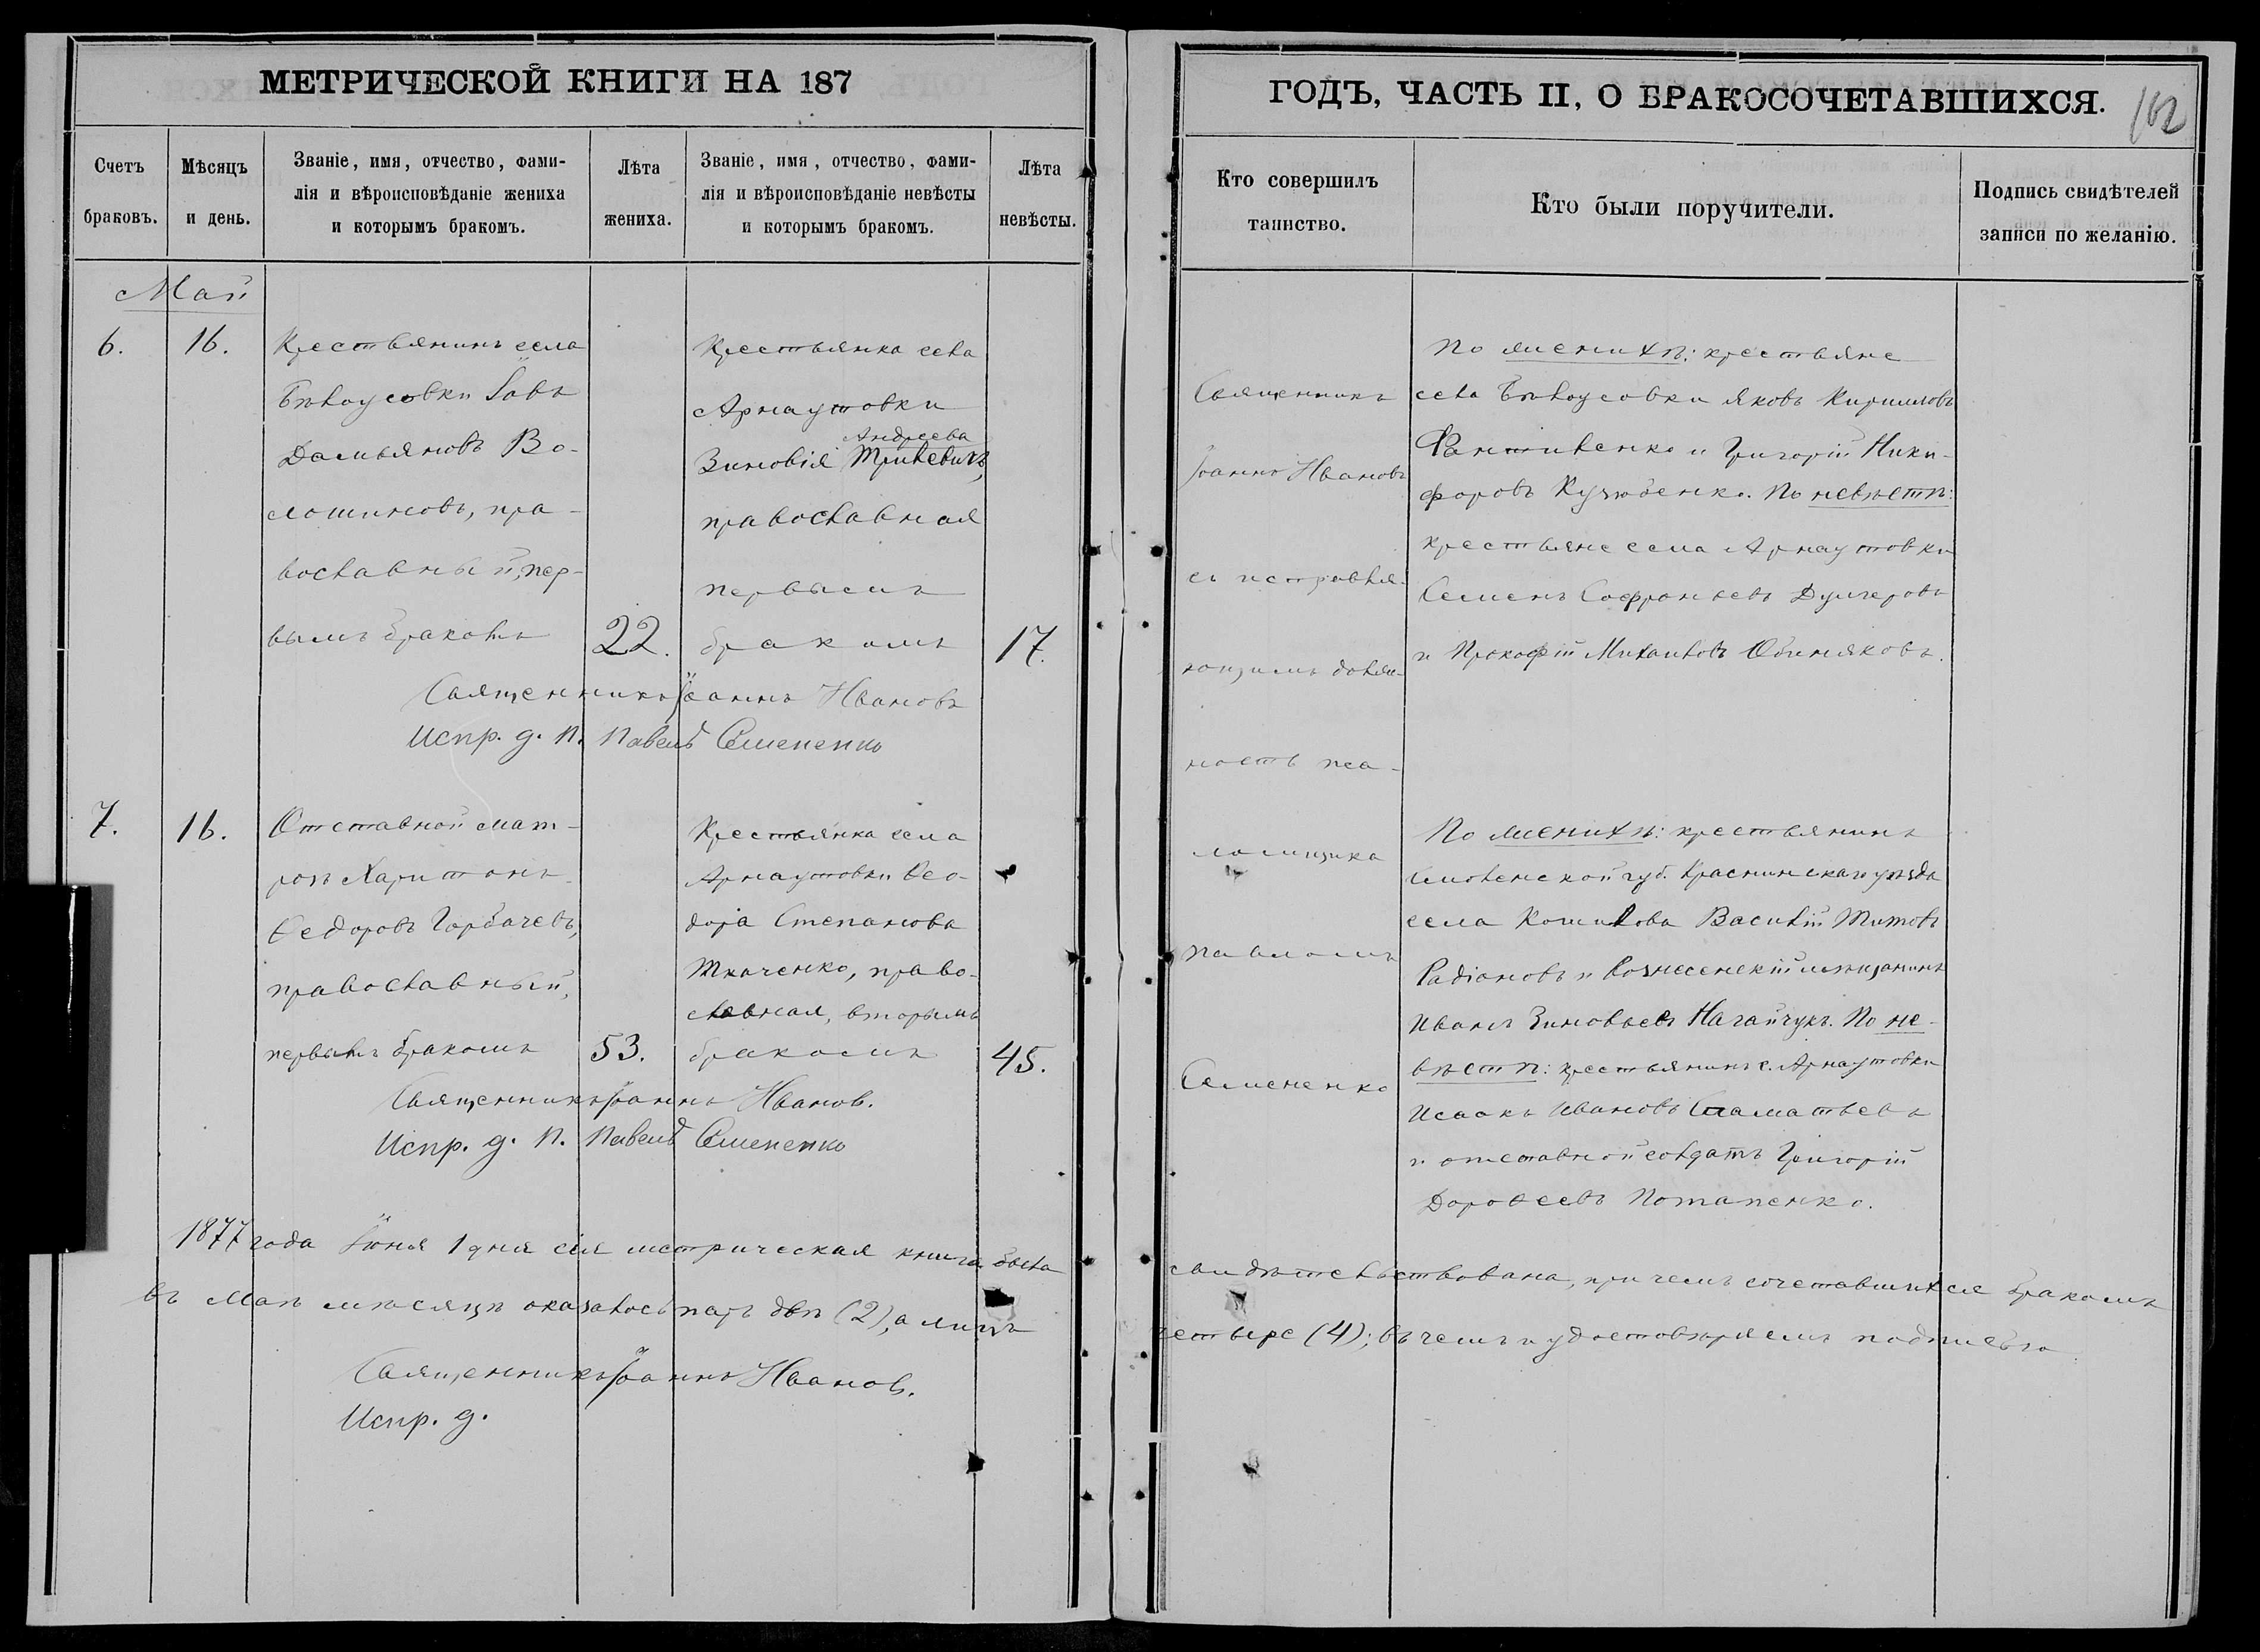 МЕТРИЧЕСКОЙ КНИГИ НА 187
Счетъ браковъ.
Мѣсяцъ и день.
Званіе, имя, отчество, фами-
лія и вѣроисповѣданіе жениха
и которымъ бракомъ.
Лѣта жениха.
Званіе, имя, отчество, фами-
лія и вѣроисповѣданіе невѣсты
и которымъ бракомъ.
Лѣта невѣсты.
Май
6.
16.
Крестьянинъ села
Бѣлоусовки Іовъ
Дамьяновъ Во-
лошиновъ, пра-
вославный, пер-
вымъ бракомъ
22.
Крестьянка села
Арнаутовки
Андреева
Зиновія
православная
первымъ
бракомъ
17.
Священникъ Іоаннъ Ивановъ
Испр. д. п. Павелъ Семененко
7.
16.
Отставной мат-
розъ Харитонъ
Ѳедоровъ Горбачевъ,
православный,
первымъ бракомъ
53.
Крестьянка села
Арнаутовки Ѳео-
дора Степанова
Ткаченко, право-
славная, вторымъ
бракомъ
45.
Священникъ Іоаннъ Иванов.
Испр. д. п. Павелъ Семененко
1877 года Іюня 1 дня сія метрическая книга была
въ Маѣ мѣсяцѣ оказалось паръ двѣ (2), а лицъ
Священникъ Іоаннъ Иванов.
Испр. д.
ГОДЪ, ЧАСТЬ II, О БРАКОСОЧЕТАВШИХСЯ.
162
Кто совершилъ
таинство.
Кто были поручители.
Подпись свидѣтелей
записи по желанію.
Священникъ
Іоаннъ Ивановъ
съ исправля-
ющимъ долж-
ность пса-
ломщика
Павломъ
Семененко
По женихѣ: крестьяне
села Бѣлоусовки Яковъ Кирилловъ
и Григорій Ники-
форовъ По невѣстѣ:
крестьяне села Арнаутовки
Семенъ Софроньевъ Дулгеровъ
и Прокофій Михаиловъ Обиняковъ.
По женихѣ: крестьянинъ
Смоленской губ. Краснинскаго уѣзда
села Василій Титовъ
Радіоновъ и Вознесенскій мѣщанинъ
Иванъ Зиновьевъ Нагайчукъ. По не-
вѣстѣ: крестьянинъ с. Арнаутовки
Исаакъ Ивановъ Стаматьевъ
и отставной солдатъ Григорій
Дороѳеевъ Потапенко.
свидѣтельствована, при чемъ сочетавшихся бракомъ
четыре (4); въ чемъ и удостовѣряемъ подписью.